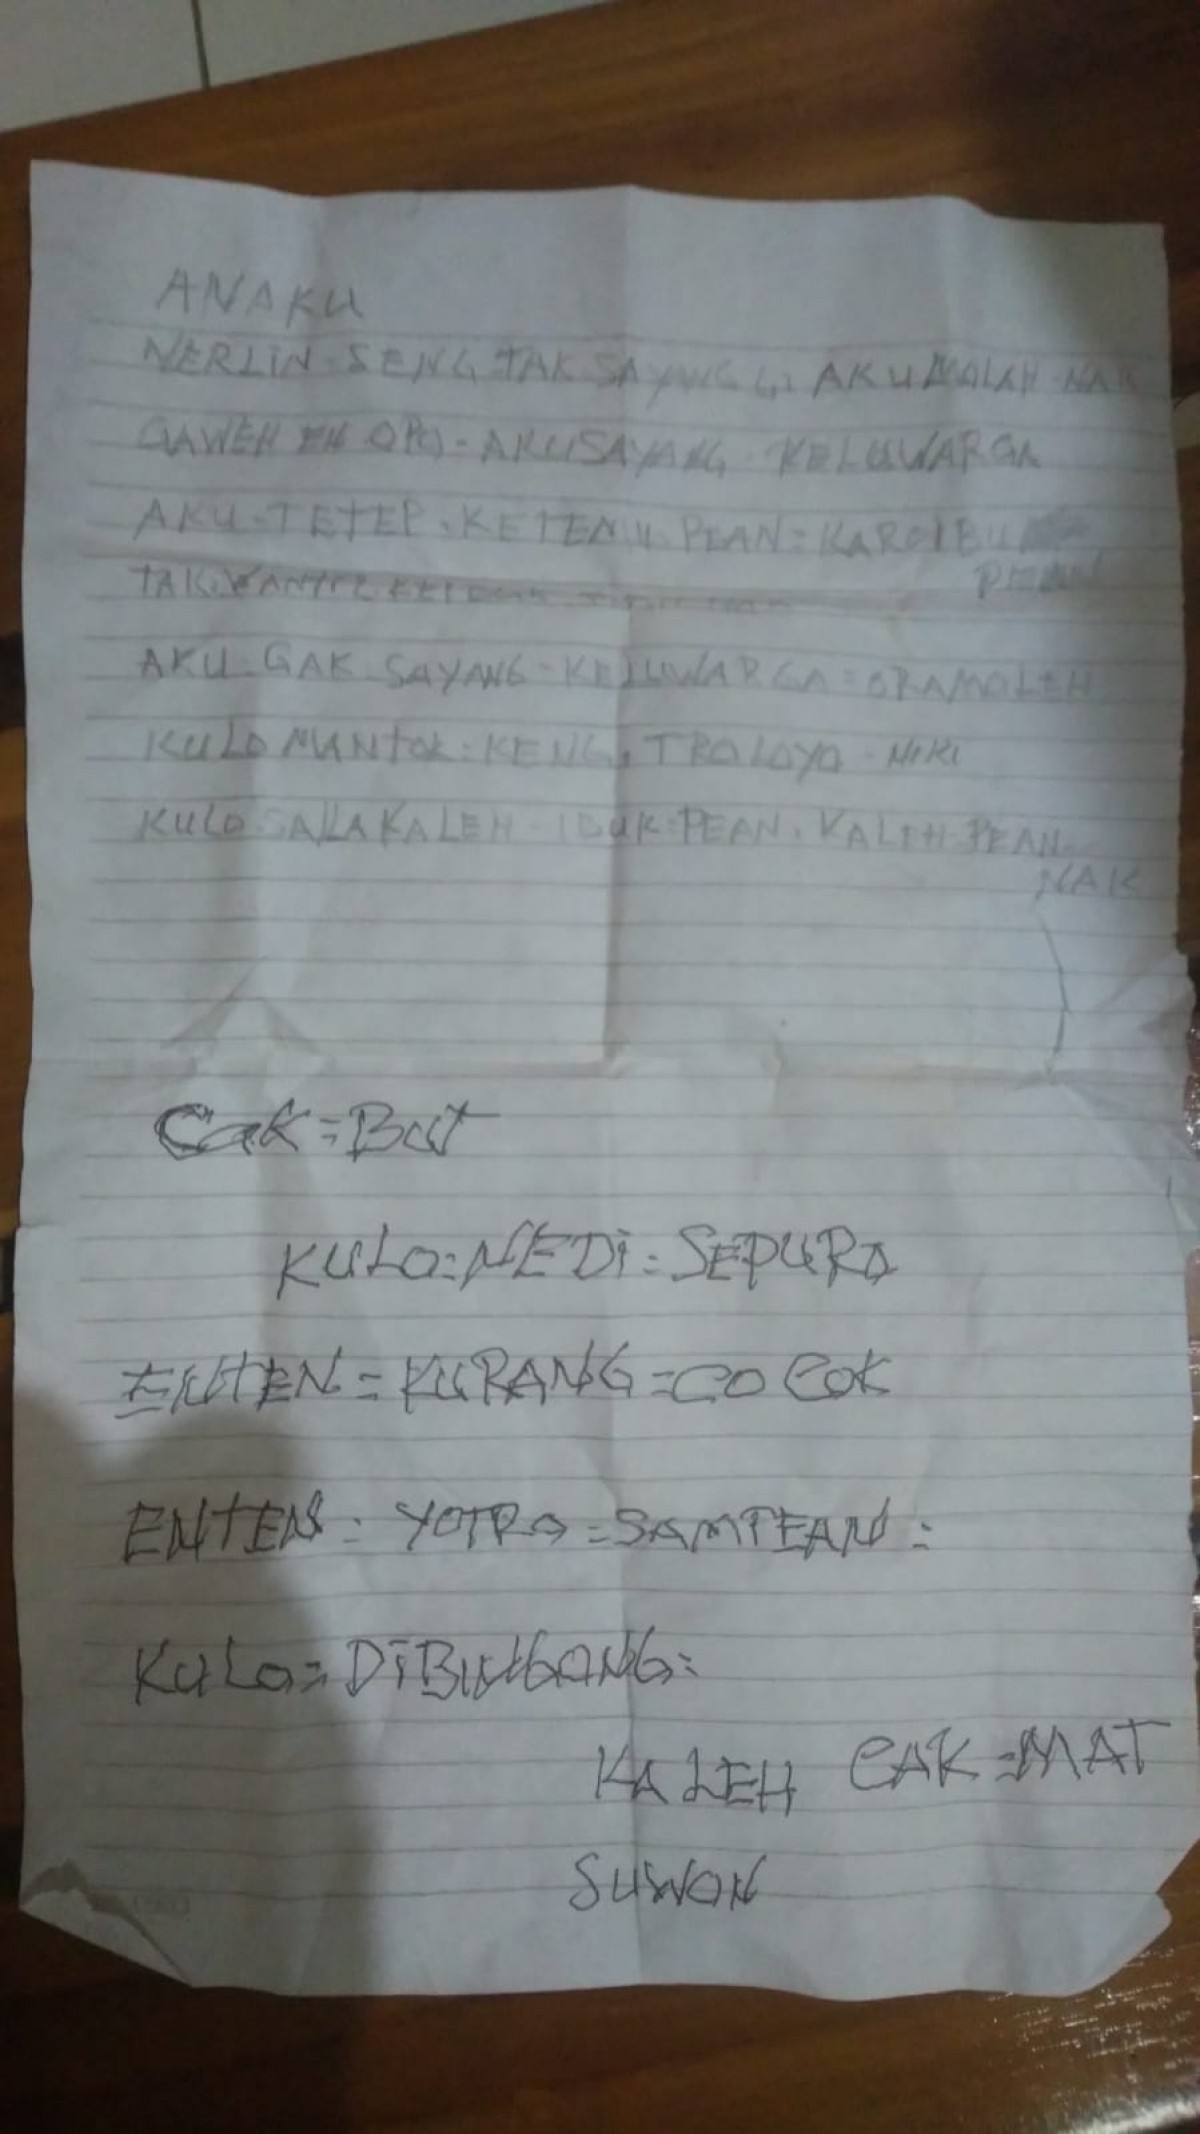 ANAKU
NERLIN = SENG TAK SAYANGGI AKU MOLEH NAK
GAWEH EH OPO - AKU SAYANG KELUWARGA
AKU - TETEP - KETEMU PEAN = KARO IBU
PEAN
TAK
AKU - GAK SAYANG - KELUWARGA = ORAMOLEH
KULO MANTOK = KENG, TROLOYO - NIKI
KULO SALLA KALEH - IBUK = PEAN, KALEH - PEAN -
NAK
Cak = But
KULO = NEDI = SEPURO
ENTEN = KURANG = COCOK
ENTEN = YOTRO = SAMPEAN =
KULO = DIBUNGANG =
KALEH CAK = MAT
SUWON